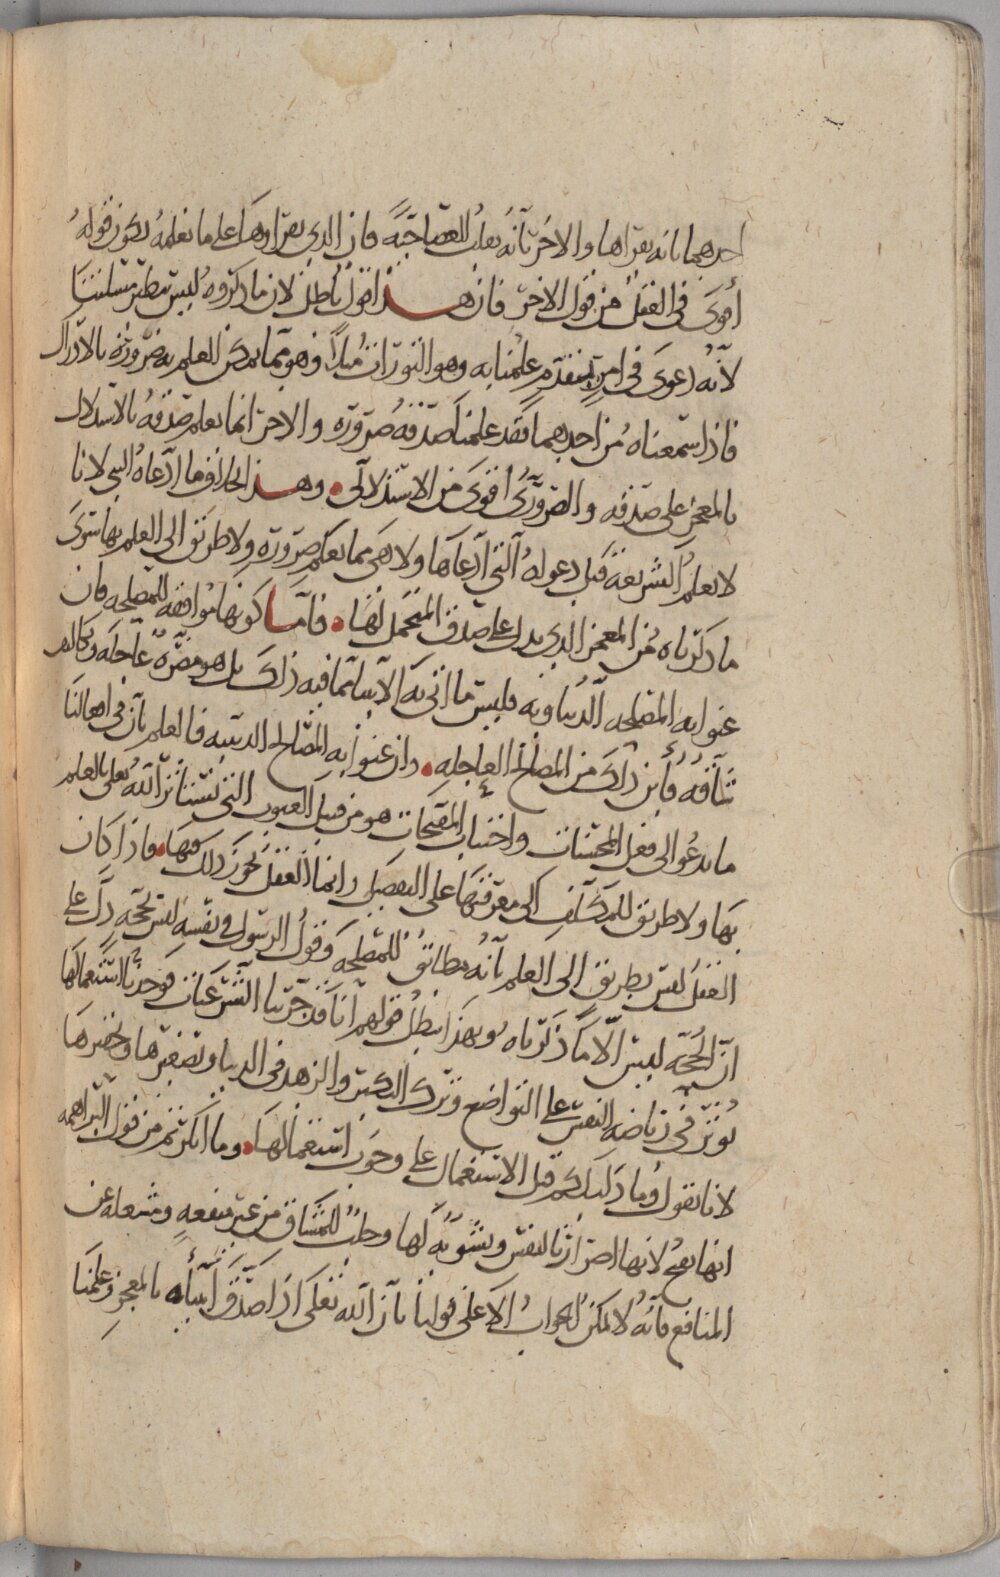 احدهما بانه يقراها والاخر بأنه يعلم الصاحبه فان الذي يقراوها على ما نعلمه يكون قوله
أقوى في العقل من قول الاخر فان هـذا قول باطل لان ما ذكروه ليس بنظير مسلتنا
لأنه دعوى في امرٍ يتقدّم علمنا به وهو التورات مثلاً وهو مما يمكن العلم به ضرورة بالادراك
فاذا سمعناه من احدهما فقد علمنا صدقه ضرورة والاخر انما يعلم صدقه بالاستدلال
بالمعجز على صدقه والضروري أقوى من الاستدلالي وهـذا بخلاف ما ادّعاه النبي لانا
لا نعلم الشريعة قبل دعوله التي ادّعاها ولا هي مما يعلم ضرورة ولا طريق الى العلم بها سوى
ما ذكرناه من المعجز الذي يدل على صدق المتحمل لها فامـا كونها موافقه للمصلحه فان
عنوا به المصلحه الدنياويه فليس ما اتى به الانبيا مما فيه ذلك بل هو مضرّة عاجله وكالف
شآقه فأين ذلك من المصالح العاجله وان عنوا به المصالح الدينيه فالعلم بأن في افعالنا
ما يدعوا الى فعل المحسنات واجتناب المقبحات هو من قبيل الغيوب التي يستاثر الله تعلى بالعلم
بها ولا طريق للمكلف الى معرفتها على التفصيل وانما العقل يجوز ذلك فيها فاذا كان
العقل ليس بطريق الى العلم بأنه مطابق للمصلحه وقول الرسول في نفسه ليس بحجه دلّ على
انّ الحجّه ليس الّا ما ذكرناه وبهذا يبطل قولهم انا قد جرّبنا الشرعيات فوجدنا استعمالها
يوثر في رياضه النفس على التواضع وترك التكبر والزهد في الدنيا وتصغيرها وتحقيرها
لانا نقول وما دليلكم قبل الاستعمال على وجوب استعمالها وما انكرتم من قول البراهمه
انها تقبح لانها اضرارٌ بالنفس وتشويهٌ لها وجلبٌ للمشاق من غير منفعهٍ ومشغله عن
المنافع فأنّه لا يمكن الجواب الا على قولنا بأن الله تعلى اذا صدّق انبيأه بالمعجز وعلمنا